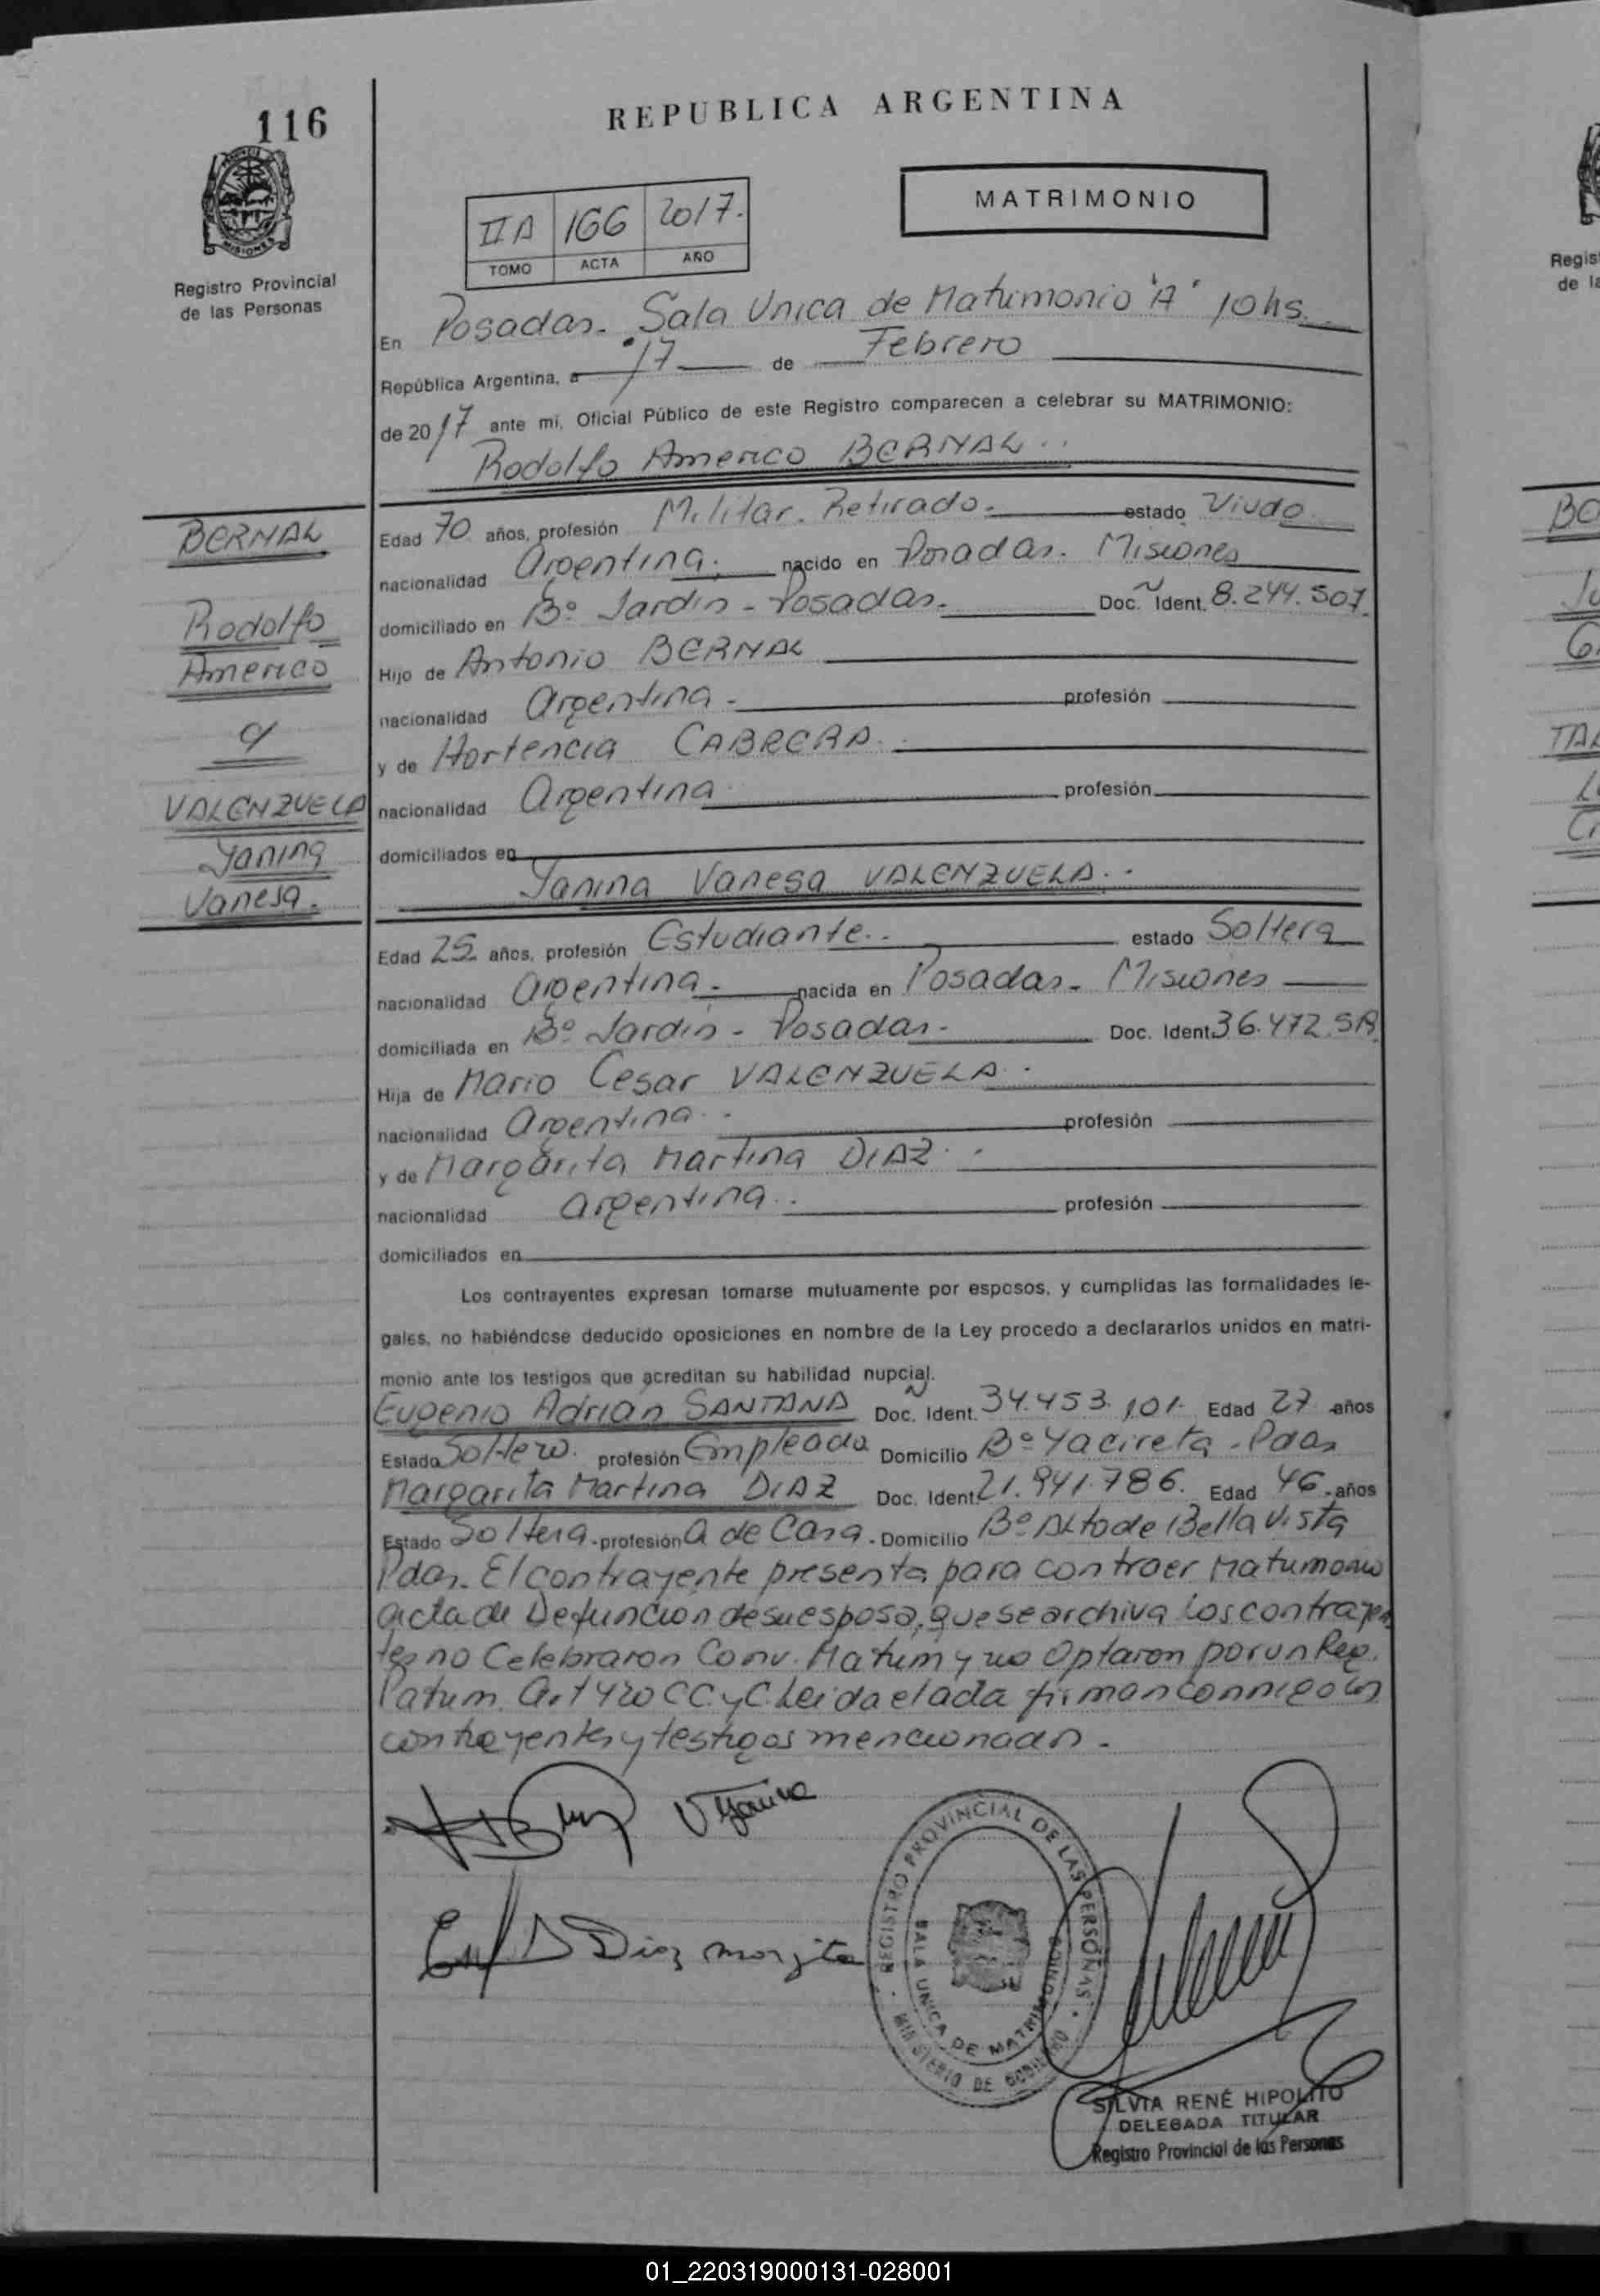 116
REPUBLICA ARGENTINA
MISIONES
Registro Provincial
de las Personas
MATRIMONIO
IIA 166 2017.
TOMO ACTA AÑO
En Posadas. Sala Unica de Matrimonio "A" 10hs.
República Argentina, a 17 de Febrero
de 2017 ante mi, Oficial Público de este Registro comparecen a celebrar su MATRIMONIO:
Rodolfo Americo BERNAL
BERNAL
Rodolfo
Americo
y
VALENZUELA
Yanina
Vanesa.
Edad 70 años, profesión Militar. Retirado. estado Viudo
nacionalidad Argentina. nacido en Posadas. Misiones
domiciliado en Bº Jardin - Posadas. Doc. Ident. 8.244.507.
Hijo de Antonio BERNAL
nacionalidad Argentina. profesión
y de Hortencia CABRERA.
nacionalidad Argentina profesión
domiciliados en
Yanina Vanesa VALENZUELA.
Edad 25 años, profesión Estudiante. estado Soltera
nacionalidad Argentina. nacida en Posadas. Misiones
domiciliada en Bº Jardin - Posadas. Doc. Ident.
Hija de Mario Cesar VALENZUELA.
nacionalidad Argentina. profesión
y de Margarita Martina DIAZ.
nacionalidad argentina. profesión
domiciliados en
Los contrayentes expresan tomarse mutuamente por esposos, y cumplidas las formalidades le-
gales, no habiéndose deducido oposiciones en nombre de la Ley procedo a declararlos unidos en matri-
monio ante los testigos que acreditan su habilidad nupcial.
Eugenio Adrian SANTANA Doc. Ident. 34.453.101. Edad 27 años
Estado Soltero. profesión Empleado Domicilio Bº Yacireta - Pdas
Margarita Martina DIAZ Doc. Ident. 21.941.786. Edad 46 años
Estado Soltera profesión A de Casa. Domicilio Bº Alto de Bella Vista
Pdas. El contrayente presenta para contraer Matrimonio
acta de Defuncion de su esposa, que se archiva Los contrayen
tes no Celebraron Conv. Matrim y no Optaron por un Reg.
Patrim. Art 420 CC y C. Leida el acta firman conmigo los
contrayentes y testigos mencionados.
Diaz
REGISTRO PROVINCIAL DE LAS PERSONAS
SALA UNICA DE MATRIMONIO
MINISTERIO DE GOBIERNO
SILVIA RENÉ HIPOLITO
DELEGADA TITULAR
Registro Provincial de las Personas
01_220319000131-028001